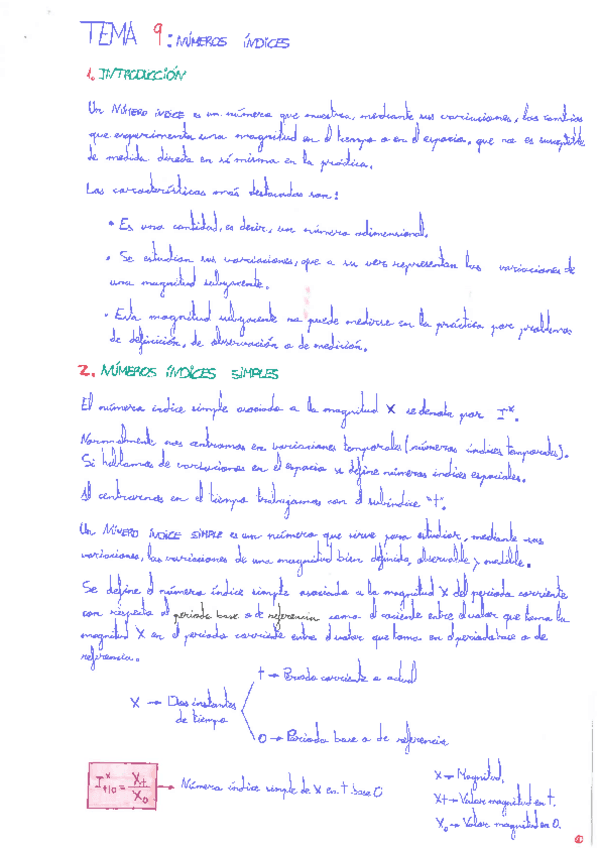 TEMA 9: NÚMEROS ÍNDICES
1. INTRODUCCIÓN
Un NÚMERO ÍNDICE es un número que muestra, mediante sus variaciones, los cambios
que experimenta una magnitud en el tiempo o en el espacio, que no es susceptible
de medida directa en sí misma en la práctica.
Las características más destacadas son:
• Es una cantidad, es decir, un número adimensional.
• Se estudian sus variaciones, que a su vez representan las variaciones de
una magnitud subyacente.
• Esta magnitud subyacente no puede medirse en la práctica por problemas
de definición, de observación o de medición.
2. NÚMEROS ÍNDICES SIMPLES
El número índice simple asociado a la magnitud X se denota por Iˣ.
Normalmente nos centramos en variaciones temporales (números índices temporales).
Si hablamos de variaciones en el espacio se define números índices espaciales.
Al centrarnos en el tiempo trabajamos con el subíndice "t".
Un NÚMERO ÍNDICE SIMPLE es un número que sirve para estudiar, mediante sus
variaciones, las variaciones de una magnitud bien definida, observable y medible.
Se define el número índice simple asociado a la magnitud X del periodo corriente
con respecto al periodo base o de referencia como el cociente entre el valor que toma la
magnitud X en el periodo corriente entre el valor que toma en el periodo base o de
referencia.
t → Periodo corriente o actual
X → Dos instantes
de tiempo
0 → Periodo base o de referencia
Iˣt|0 = Xt/X0 → Número índice simple de X en t base 0
X → Magnitud.
Xt → Valor magnitud en t.
X0 → Valor magnitud en 0.
1